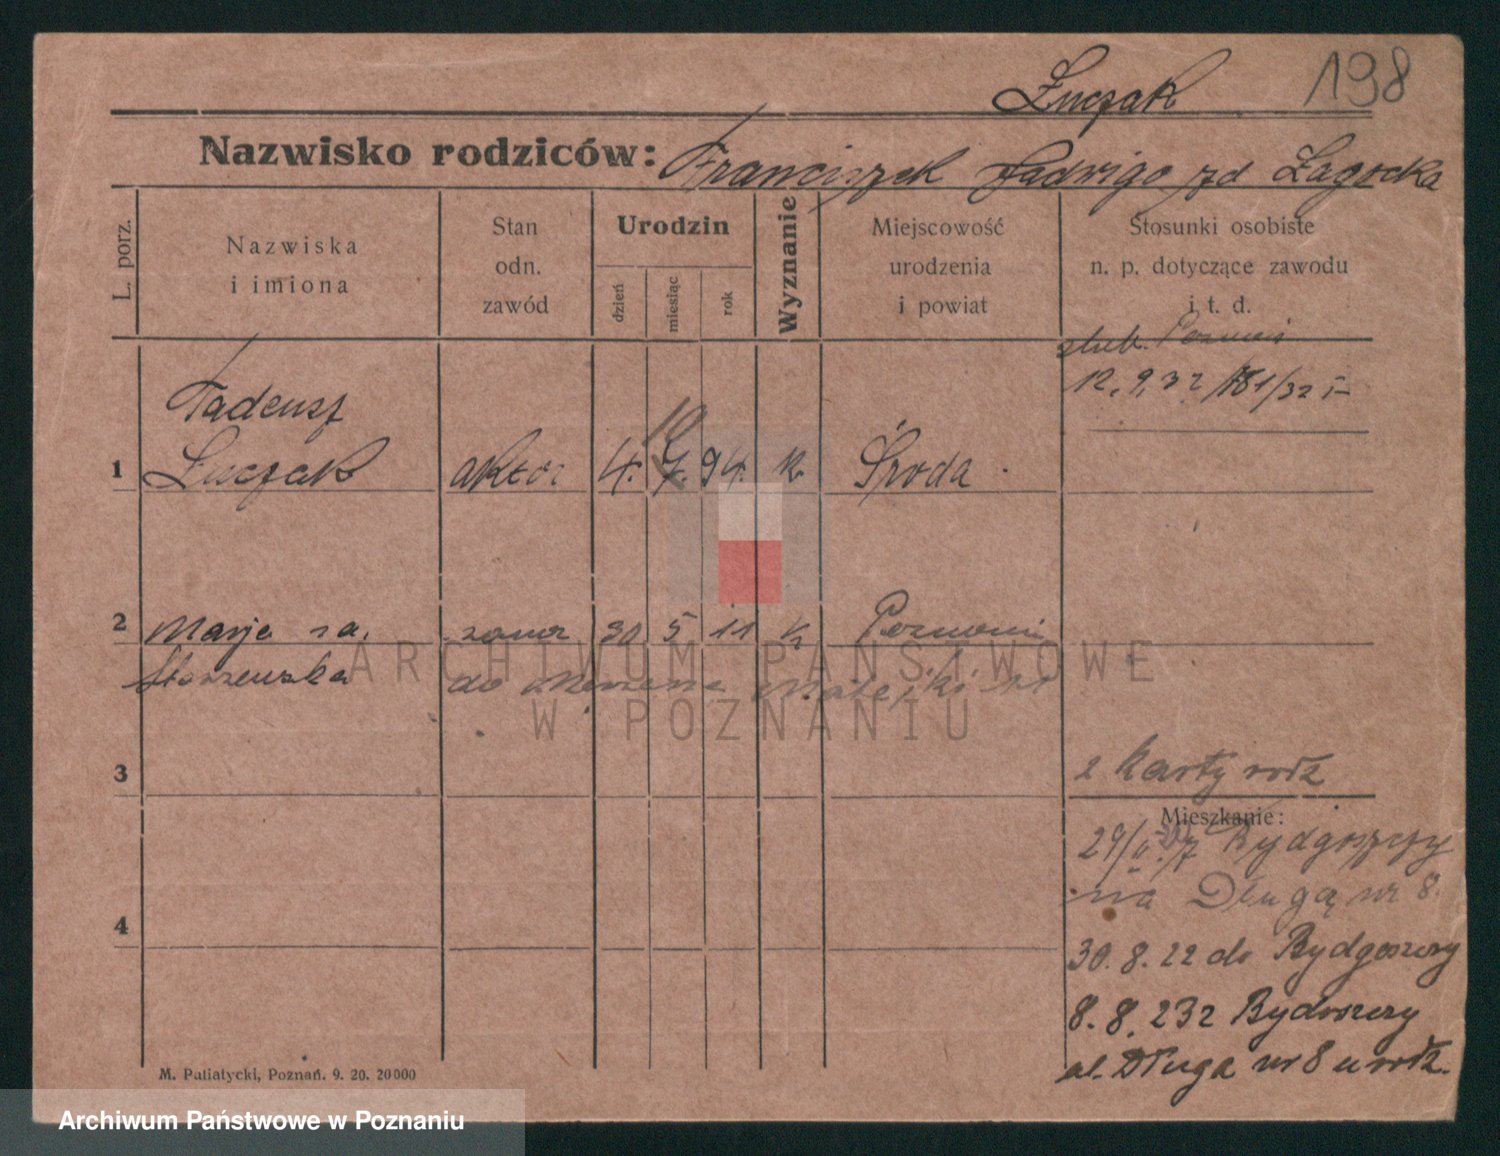 Łuczak 198
Nazwisko rodziców: Franciszek Jadwiga zd Zagocka
L. porz.
Nazwiska
i imiona
Stan
odn.
zawód
Urodzin
dzień
miesiąc
rok
Wyznanie
Miejscowość
urodzenia
i powiat
Stosunki osobiste
n. p. dotyczące zawodu
i t. d.
ślub. Poznań
12. 9. 32 /181/32 I
Tadeusz
1 Łuczak aktor 4. 10 94. k. Środa
2 Marja za. żona 30 5 11 k Poznań
Starzewska do Matejki
3 2 karty rodz
Mieszkanie:
29/ Bydgoszczy
na Długą nr 8.
4
30. 8. 22 do Bydgoszczy
8. 8. 23 z Bydoszczy
ul. Długa nr 8 u rodz.
M. Putiatycki, Poznań. 9. 20. 20000
ARCHIWUM PAŃSTWOWE
W POZNANIU
Archiwum Państwowe w Poznaniu